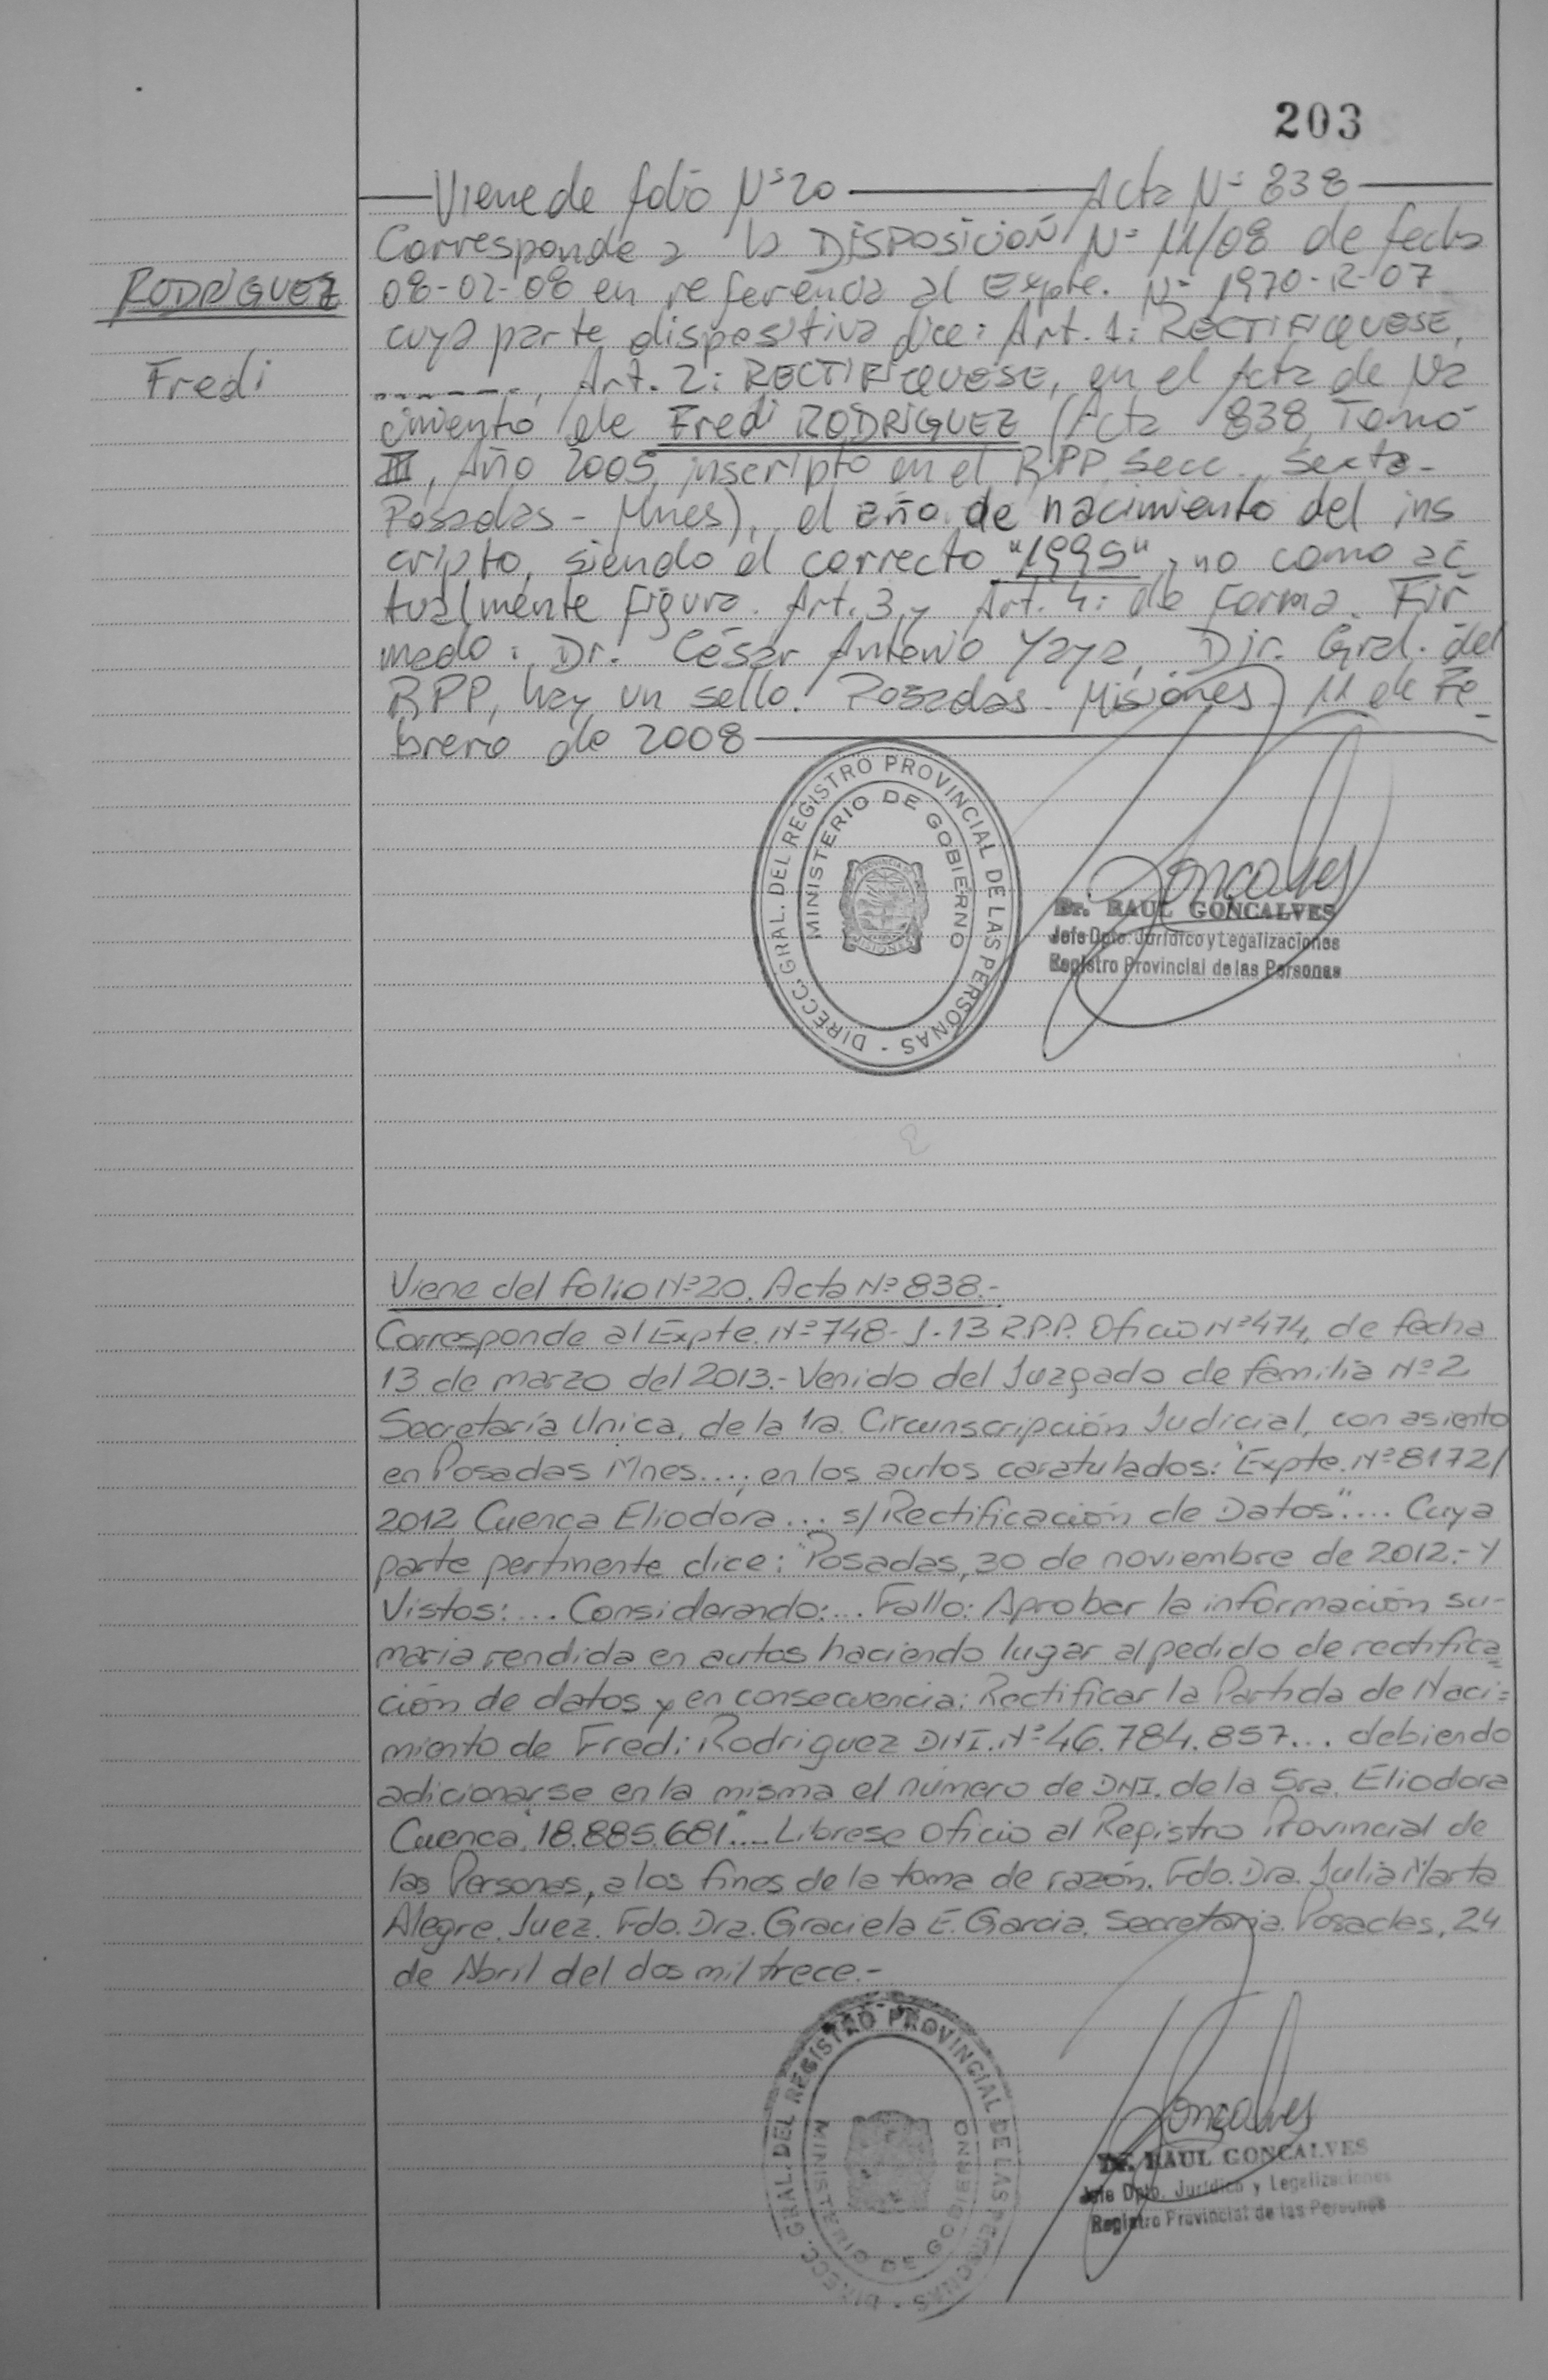 203
Viene de folio Nº 20 Acta Nº 838
Corresponde a la DISPOSICIOÑ Nº 11/08 de fecha
RODRIGUEZ
08-02-08 en referencia al Expte. Nº 1970-R-07
cuya parte dispositiva dice: Art. 1: RECTIFIQUESE,
Fredi
......., Art. 2: RECTIFIQUESE, en el Acta de Na
cimiento de Fredi RODRIGUEZ (Acta 838, Tomo
III, Año 2005, inscripto en el RPP, Secc. Sexta-
Posadas - Mnes), el año de nacimiento del ins
cripto, siendo el correcto "1995", no como ac
tualmente figura. Art. 3 y Art. 4: de Forma. Fir
mado: Dr. César Antonio Yaya, Dir. Gral. del
RPP, hay un sello. Posadas - Misiones) 11 de Fe-
brero de 2008
DIRECC. GRAL. DEL REGISTRO PROVINCIAL DE LAS PERSONAS -
MINISTERIO DE GOBIERNO
PROVINCIA
MISIONES
Goncalves
Dr. RAUL GONCALVES
Jefe Dpto. Jurídico y Legalizaciones
Registro Provincial de las Personas
Viene del folio Nº 20. Acta Nº 838.-
Corresponde al Expte. Nº 748-J-13 R.P.P. Oficio Nº 474, de fecha
13 de marzo del 2013.- Venido del Juzgado de familia Nº 2
Secretaría Unica, de la 1ra. Circunscripción Judicial, con asiento
en Posadas Mnes...., en los autos caratulados: "Expte. Nº 8172/
2012 Cuenca Eliodora... s/ Rectificación de Datos".... Cuya
parte pertinente dice: "Posadas, 30 de noviembre de 2012.- Y
Vistos:... Considerando:... Fallo: Aprobar la información su-
maria rendida en autos haciendo lugar al pedido de rectifica=
ción de datos y en consecuencia: Rectificar la Partida de Naci=
miento de Fredi Rodriguez DNI. Nº 46.784.857... debiendo
adicionarse en la misma el número de DNI. de la Sra. Eliodora
Cuenca "18.885.681".... Librese Oficio al Registro Provincial de
las Personas, a los fines de la toma de razón. Fdo. Dra. Julia Marta
Alegre. Juez. Fdo. Dra. Graciela E. Garcia. Secretaria. Posadas, 24
de Abril del dos mil trece.-
DIRECC. GRAL. DEL REGISTRO PROVINCIAL DE LAS PERSONAS -
MINISTERIO DE GOBIERNO
Goncalves
Dr. RAUL GONCALVES
Jefe Dpto. Jurídico y Legalizaciones
Registro Provincial de las Personas